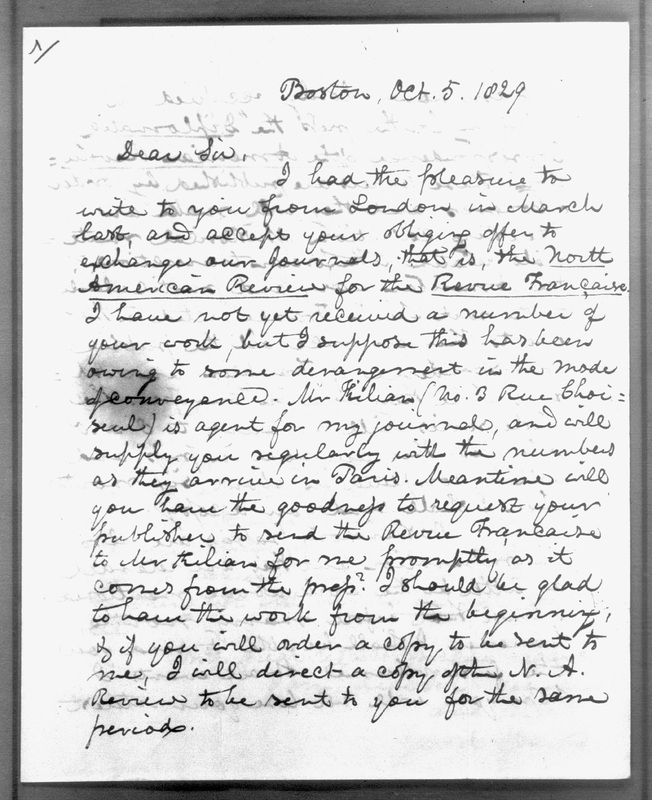 1/
Boston, Oct. 5. 1829
Dear Sir,
I had the pleasure to
write to you from London in March
last, and accept your obliging offer to
exchange our Journals, that is, the North
American Review for the Revue Française.
I have not yet received a number of
your work, but I suppose this has been
owing to some derangement in the mode
of conveyance. Mr Kilian (No. 3 Rue Choi=
seul) is agent for my journal, and will
supply you regularly with the numbers
as they arrive in Paris. Meantime will
you have the goodness to request your
publisher to send the Revue Française
to Mr Kilian for me promptly as it
comes from the press? I should be glad
to have the work from the beginning,
& if you will order a copy to be sent to
me, I will direct a copy of the N. A.
Review to be sent to you for the same
periods.